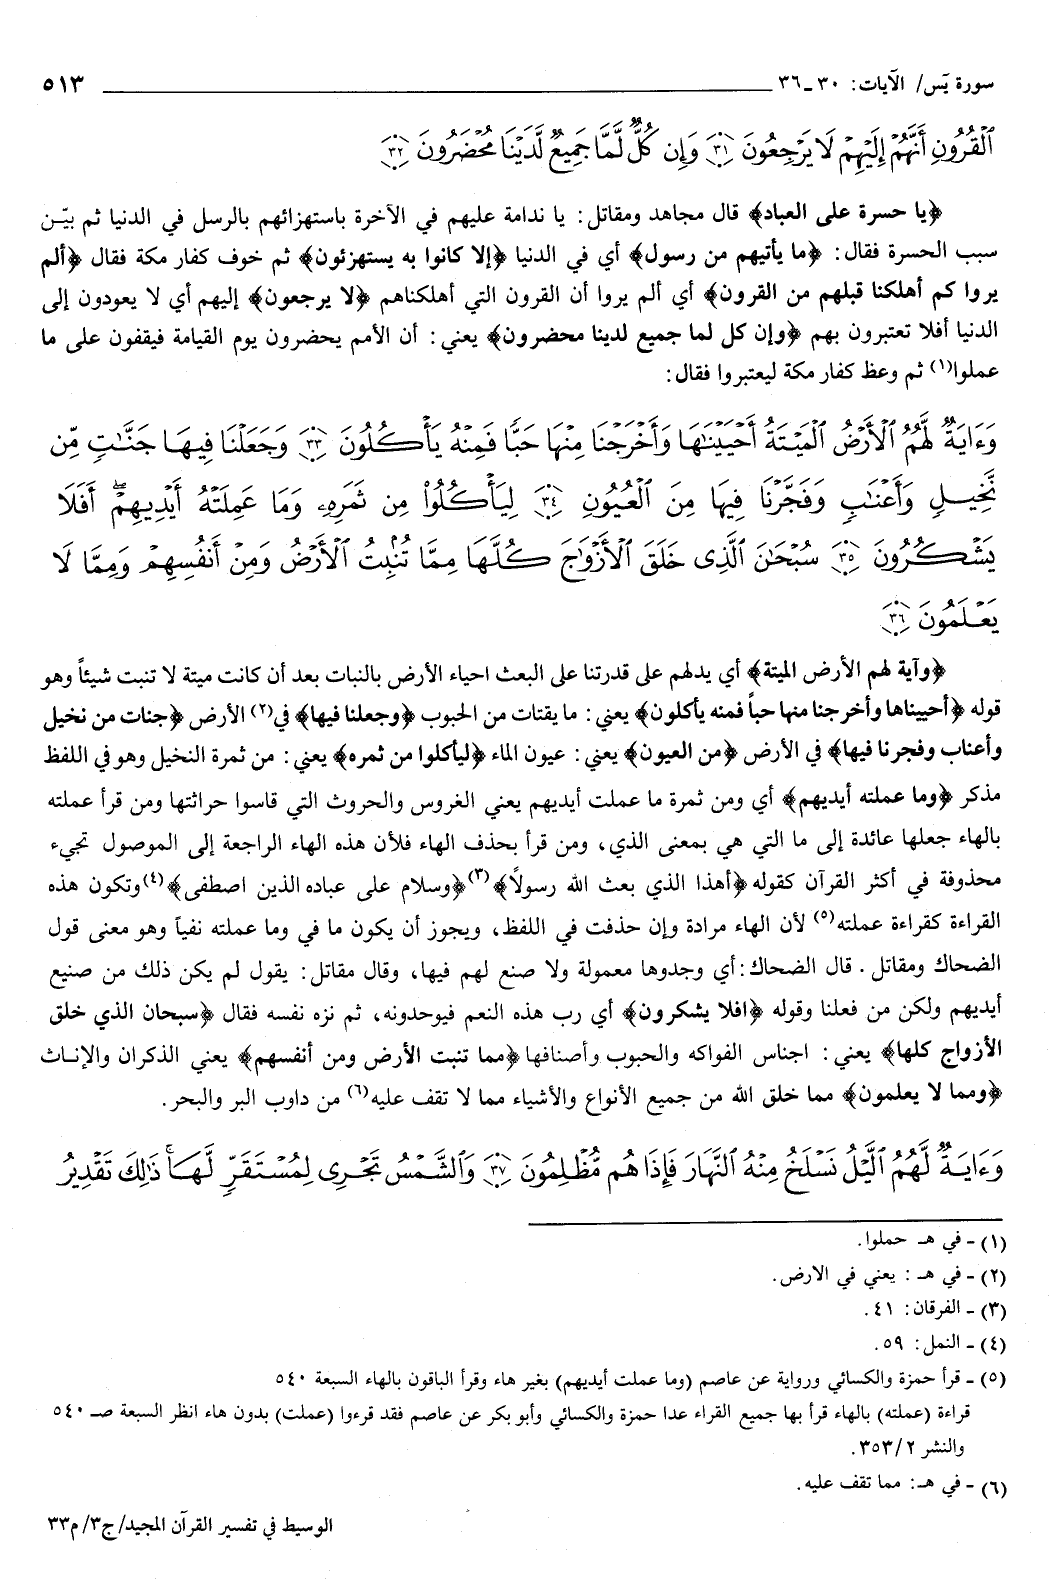 سورة يَس/ الآيات: ٣٠ـ٣٦ ٥١٣
ٱلْقُرُونِ أَنَّهُمْ إِلَيْهِمْ لَا يَرْجِعُونَ ٣١ وَإِن كُلٌّ لَّمَّا جَمِيعٌ لَّدَيْنَا مُحْضَرُونَ ٣٢
﴿يا حسرة على العباد﴾ قال مجاهد ومقاتل: يا ندامة عليهم في الآخرة باستهزائهم بالرسل في الدنيا ثم بيّـن
سبب الحسرة فقال: ﴿ما يأتيهم من رسول﴾ أي في الدنيا ﴿إلا كانوا به يستهزئون﴾ ثم خوف كفار مكة فقال ﴿ألم
يروا كم أهلكنا قبلهم من القرون﴾ أي ألم يروا أن القرون التي أهلكناهم ﴿لا يرجعون﴾ إليهم أي لا يعودون إلى
الدنيا أفلا تعتبرون بهم ﴿وإن كل لما جميع لدينا محضرون﴾ يعني: أن الأمم يحضرون يوم القيامة فيقفون على ما
عملوا(١) ثم وعظ كفار مكة ليعتبروا فقال:
وَءَايَةٌ لَّهُمُ ٱلْأَرْضُ ٱلْمَيْتَةُ أَحْيَيْنَٰهَا وَأَخْرَجْنَا مِنْهَا حَبًّا فَمِنْهُ يَأْكُلُونَ ٣٣ وَجَعَلْنَا فِيهَا جَنَّٰتٍ مِّن
نَّخِيلٍ وَأَعْنَٰبٍ وَفَجَّرْنَا فِيهَا مِنَ ٱلْعُيُونِ ٣٤ لِيَأْكُلُوا۟ مِن ثَمَرِهِۦ وَمَا عَمِلَتْهُ أَيْدِيهِمْ ۖ أَفَلَا
يَشْكُرُونَ ٣٥ سُبْحَٰنَ ٱلَّذِى خَلَقَ ٱلْأَزْوَٰجَ كُلَّهَا مِمَّا تُنۢبِتُ ٱلْأَرْضُ وَمِنْ أَنفُسِهِمْ وَمِمَّا لَا
يَعْلَمُونَ ٣٦
﴿وآية لهم الأرض الميتة﴾ أي يدلهم على قدرتنا على البعث احياء الأرض بالنبات بعد أن كانت ميتة لا تنبت شيئاً وهو
قوله ﴿أحييناها وأخرجنا منها حباً فمنه يأكلون﴾ يعني: ما يقتات من الحبوب ﴿وجعلنا فيها﴾ في(٢) الأرض ﴿جنات من نخيل
وأعناب وفجرنا فيها﴾ في الأرض ﴿من العيون﴾ يعني: عيون الماء ﴿ليأكلوا من ثمره﴾ يعني: من ثمرة النخيل وهو في اللفظ
مذكر ﴿وما عملته أيديهم﴾ أي ومن ثمرة ما عملت أيديهم يعني الغروس والحروث التي قاسوا حراثتها ومن قرأ عملته
بالهاء جعلها عائدة إلى ما التي هي بمعنى الذي، ومن قرأ بحذف الهاء فلأن هذه الهاء الراجعة إلى الموصول تجيء
محذوفة في أكثر القرآن كقوله ﴿أهذا الذي بعث الله رسولًا﴾(٣) ﴿وسلام على عباده الذين اصطفى﴾(٤) وتكون هذه
القراءة كقراءة عملته(٥) لأن الهاء مرادة وإن حذفت في اللفظ، ويجوز أن يكون ما في وما عملته نفياً وهو معنى قول
الضحاك ومقاتل. قال الضحاك: أي وجدوها معمولة ولا صنع لهم فيها، وقال مقاتل: يقول لم يكن ذلك من صنيع
أيديهم ولكن من فعلنا وقوله ﴿افلا يشكرون﴾ أي رب هذه النعم فيوحدونه، ثم نزه نفسه فقال ﴿سبحان الذي خلق
الأزواج كلها﴾ يعني: اجناس الفواكه والحبوب وأصنافها ﴿مما تنبت الأرض ومن أنفسهم﴾ يعني الذكران والإناث
﴿ومما لا يعلمون﴾ مما خلق الله من جميع الأنواع والأشياء مما لا تقف عليه(٦) من داوب البر والبحر.
وَءَايَةٌ لَّهُمُ ٱلَّيْلُ نَسْلَخُ مِنْهُ ٱلنَّهَارَ فَإِذَا هُم مُّظْلِمُونَ ٣٧ وَٱلشَّمْسُ تَجْرِى لِمُسْتَقَرٍّ لَّهَا ۚ ذَٰلِكَ تَقْدِيرُ
(١) ـ في هـ حملوا.
(٢) ـ في هـ: يعني في الارض.
(٣) ـ الفرقان: ٤١.
(٤) ـ النمل: ٥٩.
(٥) ـ قرأ حمزة والكسائي ورواية عن عاصم (وما عملت أيديهم) بغير هاء وقرأ الباقون بالهاء السبعة ٥٤٠
قراءة (عملته) بالهاء قرأ بها جميع القراء عدا حمزة والكسائي وأبو بكر عن عاصم فقد قرءوا (عملت) بدون هاء انظر السبعة صـ ٥٤٠
والنشر ٣٥٣/٢.
(٦) ـ في هـ: مما تقف عليه.
الوسيط في تفسير القرآن المجيد/ج٣/م٣٣